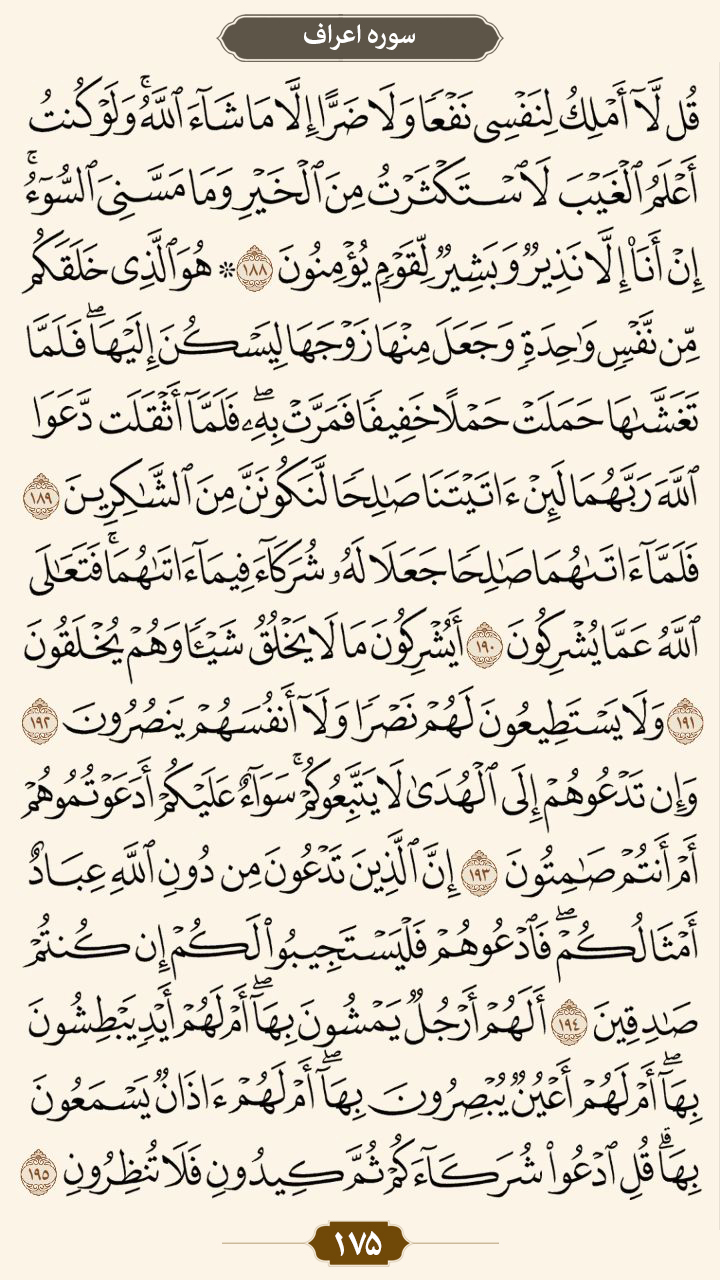 سوره اعراف
قُل لَّآ أَمْلِكُ لِنَفْسِى نَفْعًا وَلَا ضَرًّا إِلَّا مَا شَآءَ ٱللَّهُۚ وَلَوْ كُنتُ
أَعْلَمُ ٱلْغَيْبَ لَٱسْتَكْثَرْتُ مِنَ ٱلْخَيْرِ وَمَا مَسَّنِىَ ٱلسُّوٓءُۚ
إِنْ أَنَا۠ إِلَّا نَذِيرٌ وَبَشِيرٌ لِّقَوْمٍ يُؤْمِنُونَ ١٨٨ ۞ هُوَ ٱلَّذِى خَلَقَكُم
مِّن نَّفْسٍ وَٰحِدَةٍ وَجَعَلَ مِنْهَا زَوْجَهَا لِيَسْكُنَ إِلَيْهَاۖ فَلَمَّا
تَغَشَّىٰهَا حَمَلَتْ حَمْلًا خَفِيفًا فَمَرَّتْ بِهِۦۖ فَلَمَّآ أَثْقَلَت دَّعَوَا
ٱللَّهَ رَبَّهُمَا لَئِنْ ءَاتَيْتَنَا صَٰلِحًا لَّنَكُونَنَّ مِنَ ٱلشَّٰكِرِينَ ١٨٩
فَلَمَّآ ءَاتَىٰهُمَا صَٰلِحًا جَعَلَا لَهُۥ شُرَكَآءَ فِيمَآ ءَاتَىٰهُمَاۚ فَتَعَٰلَى
ٱللَّهُ عَمَّا يُشْرِكُونَ ١٩٠ أَيُشْرِكُونَ مَا لَا يَخْلُقُ شَيْـًٔا وَهُمْ يُخْلَقُونَ
١٩١ وَلَا يَسْتَطِيعُونَ لَهُمْ نَصْرًا وَلَآ أَنفُسَهُمْ يَنصُرُونَ ١٩٢
وَإِن تَدْعُوهُمْ إِلَى ٱلْهُدَىٰ لَا يَتَّبِعُوكُمْۚ سَوَآءٌ عَلَيْكُمْ أَدَعَوْتُمُوهُمْ
أَمْ أَنتُمْ صَٰمِتُونَ ١٩٣ إِنَّ ٱلَّذِينَ تَدْعُونَ مِن دُونِ ٱللَّهِ عِبَادٌ
أَمْثَالُكُمْۖ فَٱدْعُوهُمْ فَلْيَسْتَجِيبُوا۟ لَكُمْ إِن كُنتُمْ
صَٰدِقِينَ ١٩٤ أَلَهُمْ أَرْجُلٌ يَمْشُونَ بِهَآۖ أَمْ لَهُمْ أَيْدٍ يَبْطِشُونَ
بِهَآۖ أَمْ لَهُمْ أَعْيُنٌ يُبْصِرُونَ بِهَآۖ أَمْ لَهُمْ ءَاذَانٌ يَسْمَعُونَ
بِهَاۗ قُلِ ٱدْعُوا۟ شُرَكَآءَكُمْ ثُمَّ كِيدُونِ فَلَا تُنظِرُونِ ١٩٥
١٧٥